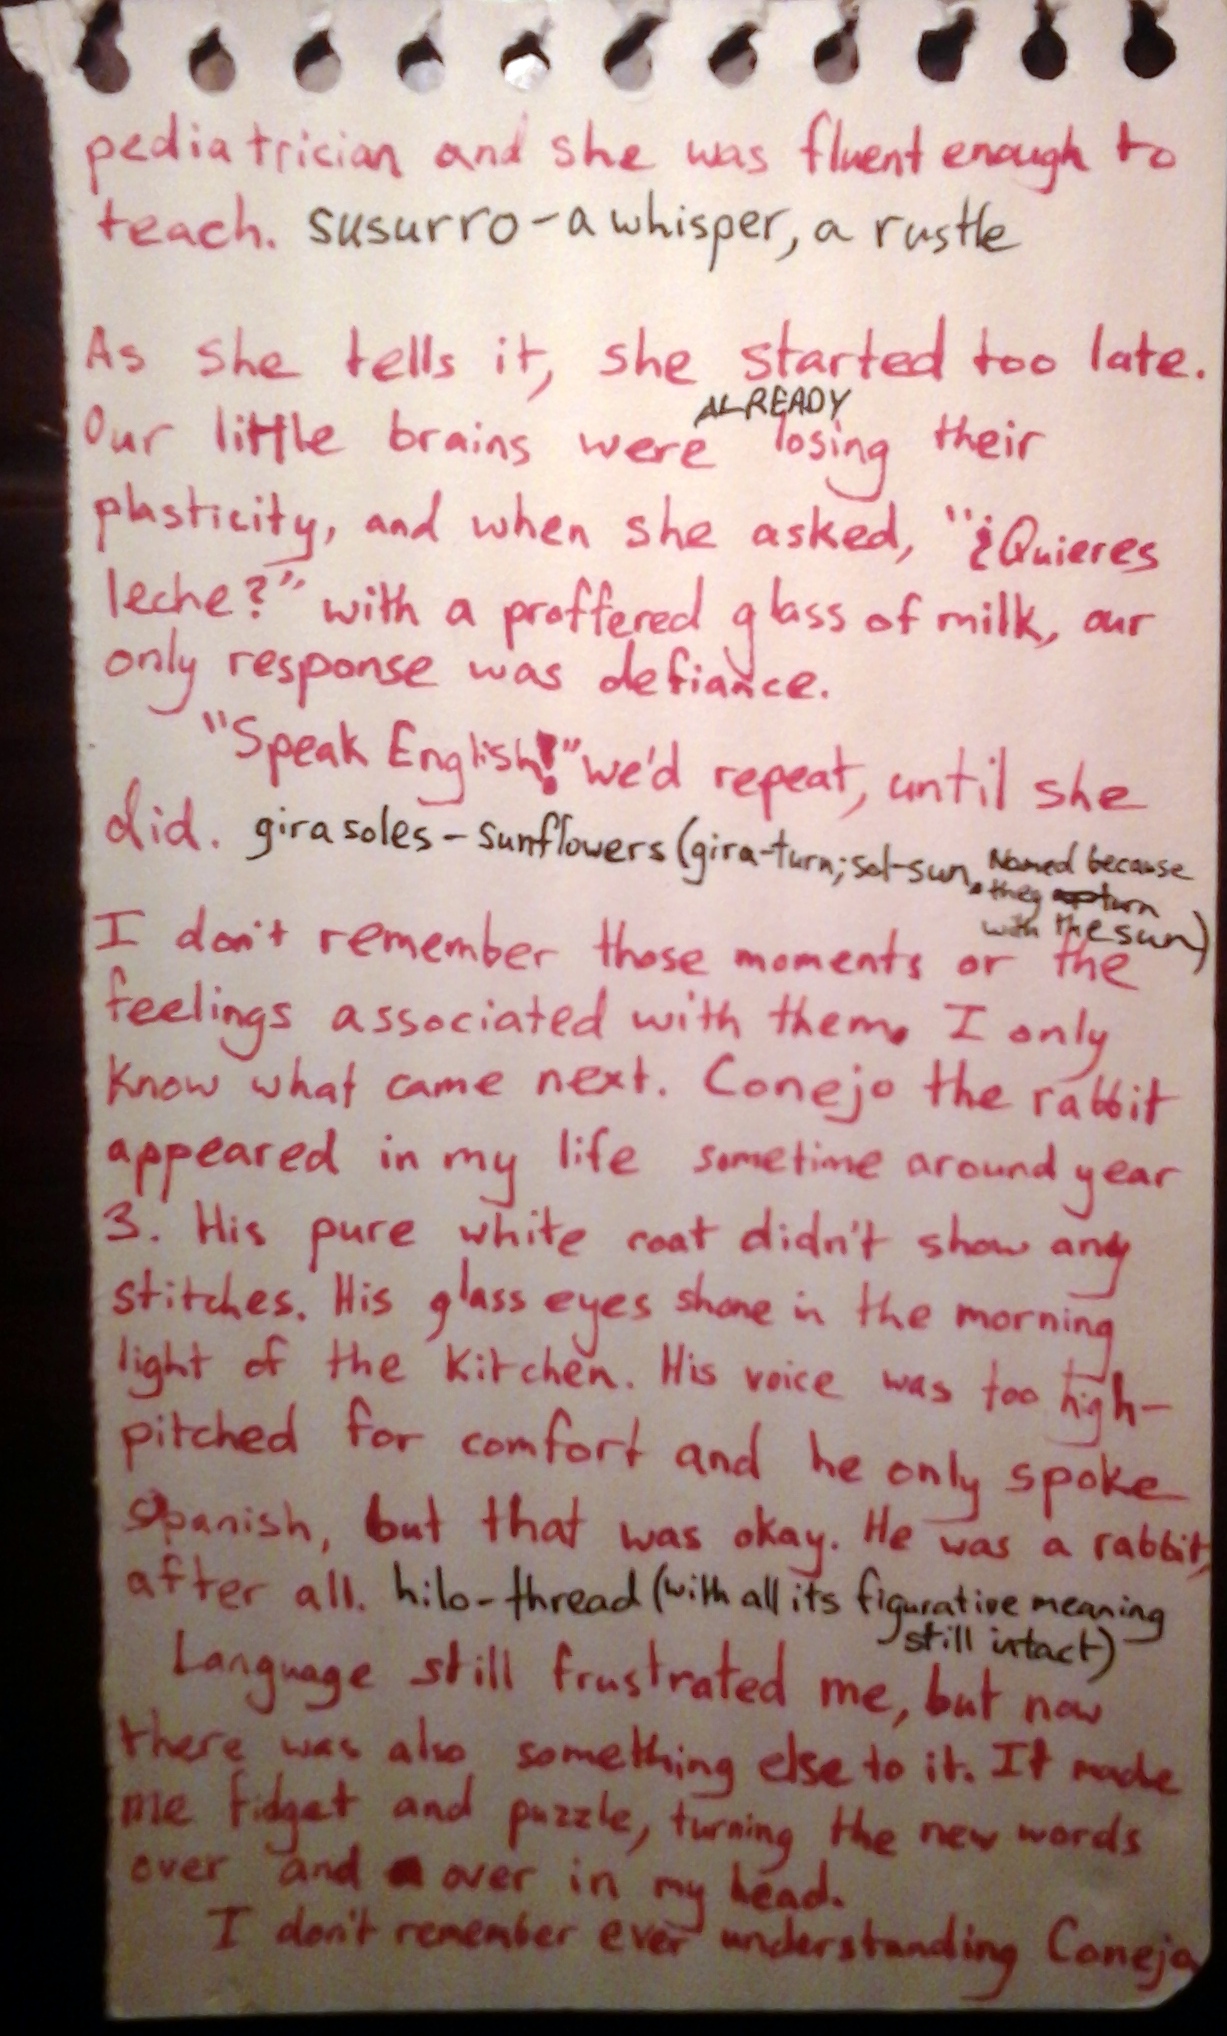 pediatrician and she was fluent enough to
teach. susurro - a whisper, a rustle
As she tells it, she started too late.
ALREADY
Our little brains were losing their
plasticity, and when she asked, "¿Quieres
leche?" with a proffered glass of milk, our
only response was defiance.
"Speak English!" we'd repeat, until she
did. girasoles - sunflowers (gira-turn; sol-sun. Named because
they turn
with the sun)
I don't remember those moments or the
feelings associated with them. I only
know what came next. Conejo the rabbit
appeared in my life sometime around year
3. His pure white coat didn't show any
stitches. His glass eyes shone in the morning
light of the kitchen. His voice was too high-
pitched for comfort and he only spoke
Spanish, but that was okay. He was a rabbit,
after all. hilo - thread (with all its figurative meaning
still intact)
Language still frustrated me, but now
there was also something else to it. It made
me fidget and puzzle, turning the new words
over and over in my head.
I don't remember ever understanding Conejo